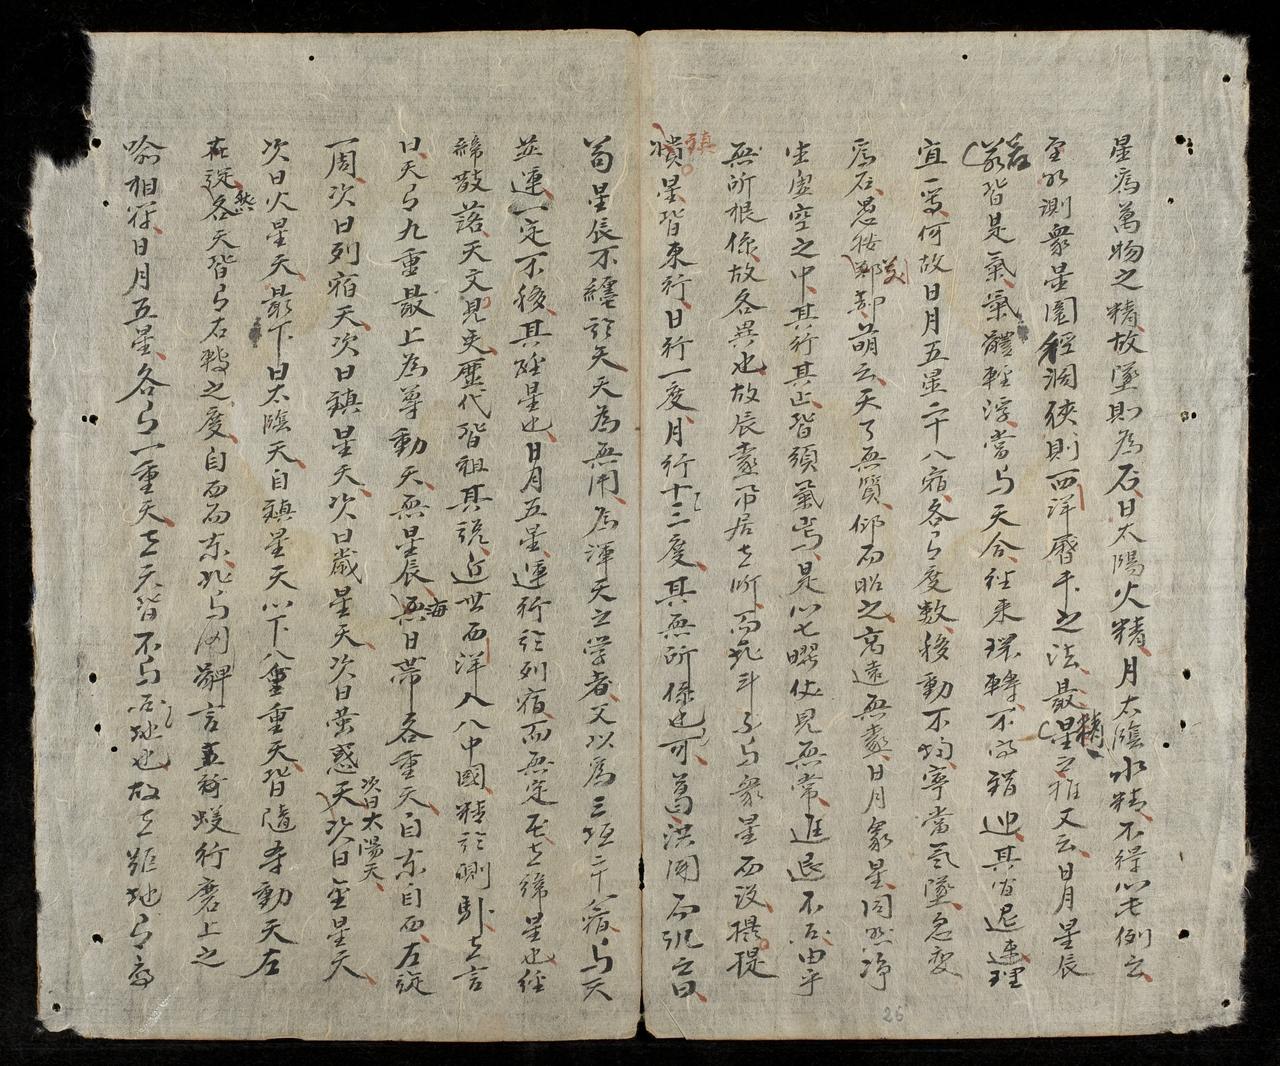 星為萬物之精故墜則為石日太陽火精月太陰水精不得以此例云
至於測衆星圍徑濶狹則西洋曆中之法最精星之推又云日月星辰
若皆是氣氣體輕浮當与天合往來環轉不得錯迕其省遲速理
宜一等何故日月五星二十八宿各有度數移動不均寧當氣墜忽變
為石思按郄萌云天了無質仰而昭之高遠無處日月衆星同然浮
生虛空之中其行其止皆須氣焉是以七曜伏見無常進退不同由乎
無所根係故各異也故辰處常居其所而北斗不与衆星西没攝提
鎮
填星皆東行日行一度月行十三度其無所係也可葛洪聞而譏之曰
苟星辰不繼於天天為無用為渾天之學者又以為三垣二十八宿与天
並運一定不移其經星也日月五星運行於列宿而無定至其緯星也經
緯散落天文見史歷代皆祖其說近世西洋入入中國精於測驗其言
曰天有九重最上為尊動天無星辰每日帶各重天自東自西左旋
一周次曰列宿天次曰鎮星天次曰歲星天次曰熒惑天次曰太陽天次曰金星天
次曰火星天最下曰太陰天自鎮星天以下八重天皆隨尊動天左
旋然各天皆有右轉之度自西而東北与周髀言蟻行磨上之
喻相符日月五星各有一重天其天皆不与恒地也故其距地有高
26